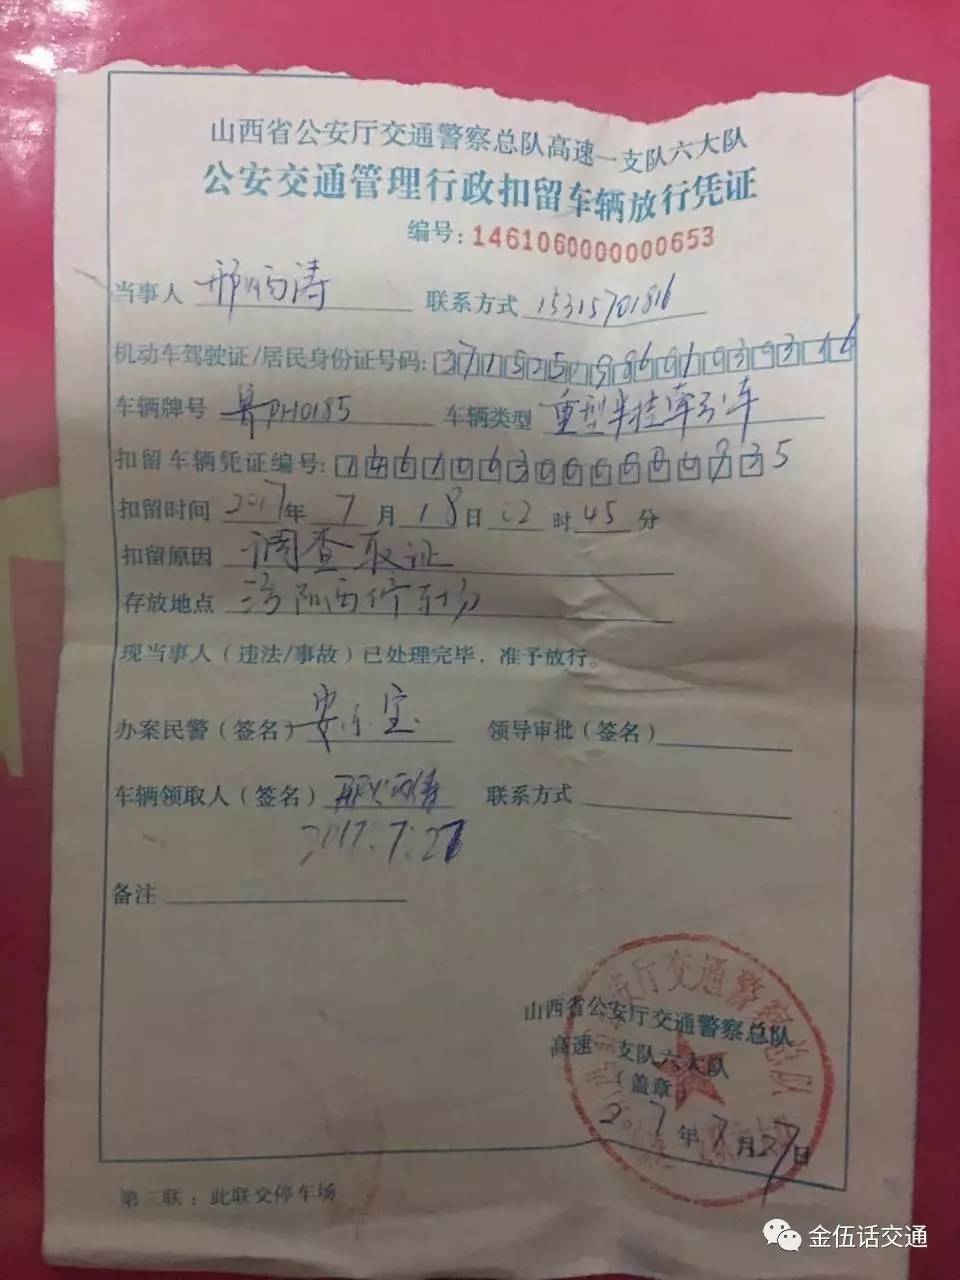 山西省公安厅交通警察总队高速一支队六大队
公安交通管理行政扣留车辆放行凭证
编号：1461060000000653
当事人 邢丙涛 联系方式 15315701816
机动车驾驶证/居民身份证号码：
车辆牌号 鲁PH0185 车辆类型 重型半挂牵引车
扣留车辆凭证编号：
扣留时间 2017年 7 月 18 日 02 时 45 分
扣留原因 调查取证
存放地点 汾阳西停车场
现当事人（违法/事故）已处理完毕，准予放行。
办案民警（签名） 领导审批（签名）
车辆领取人（签名） 邢丙涛 联系方式
2017.7.27
备注
山西省公安厅交通警察总队
高速一支队六大队
（盖章）
2017年7月27日
第三联：此联交停车场
金伍话交通